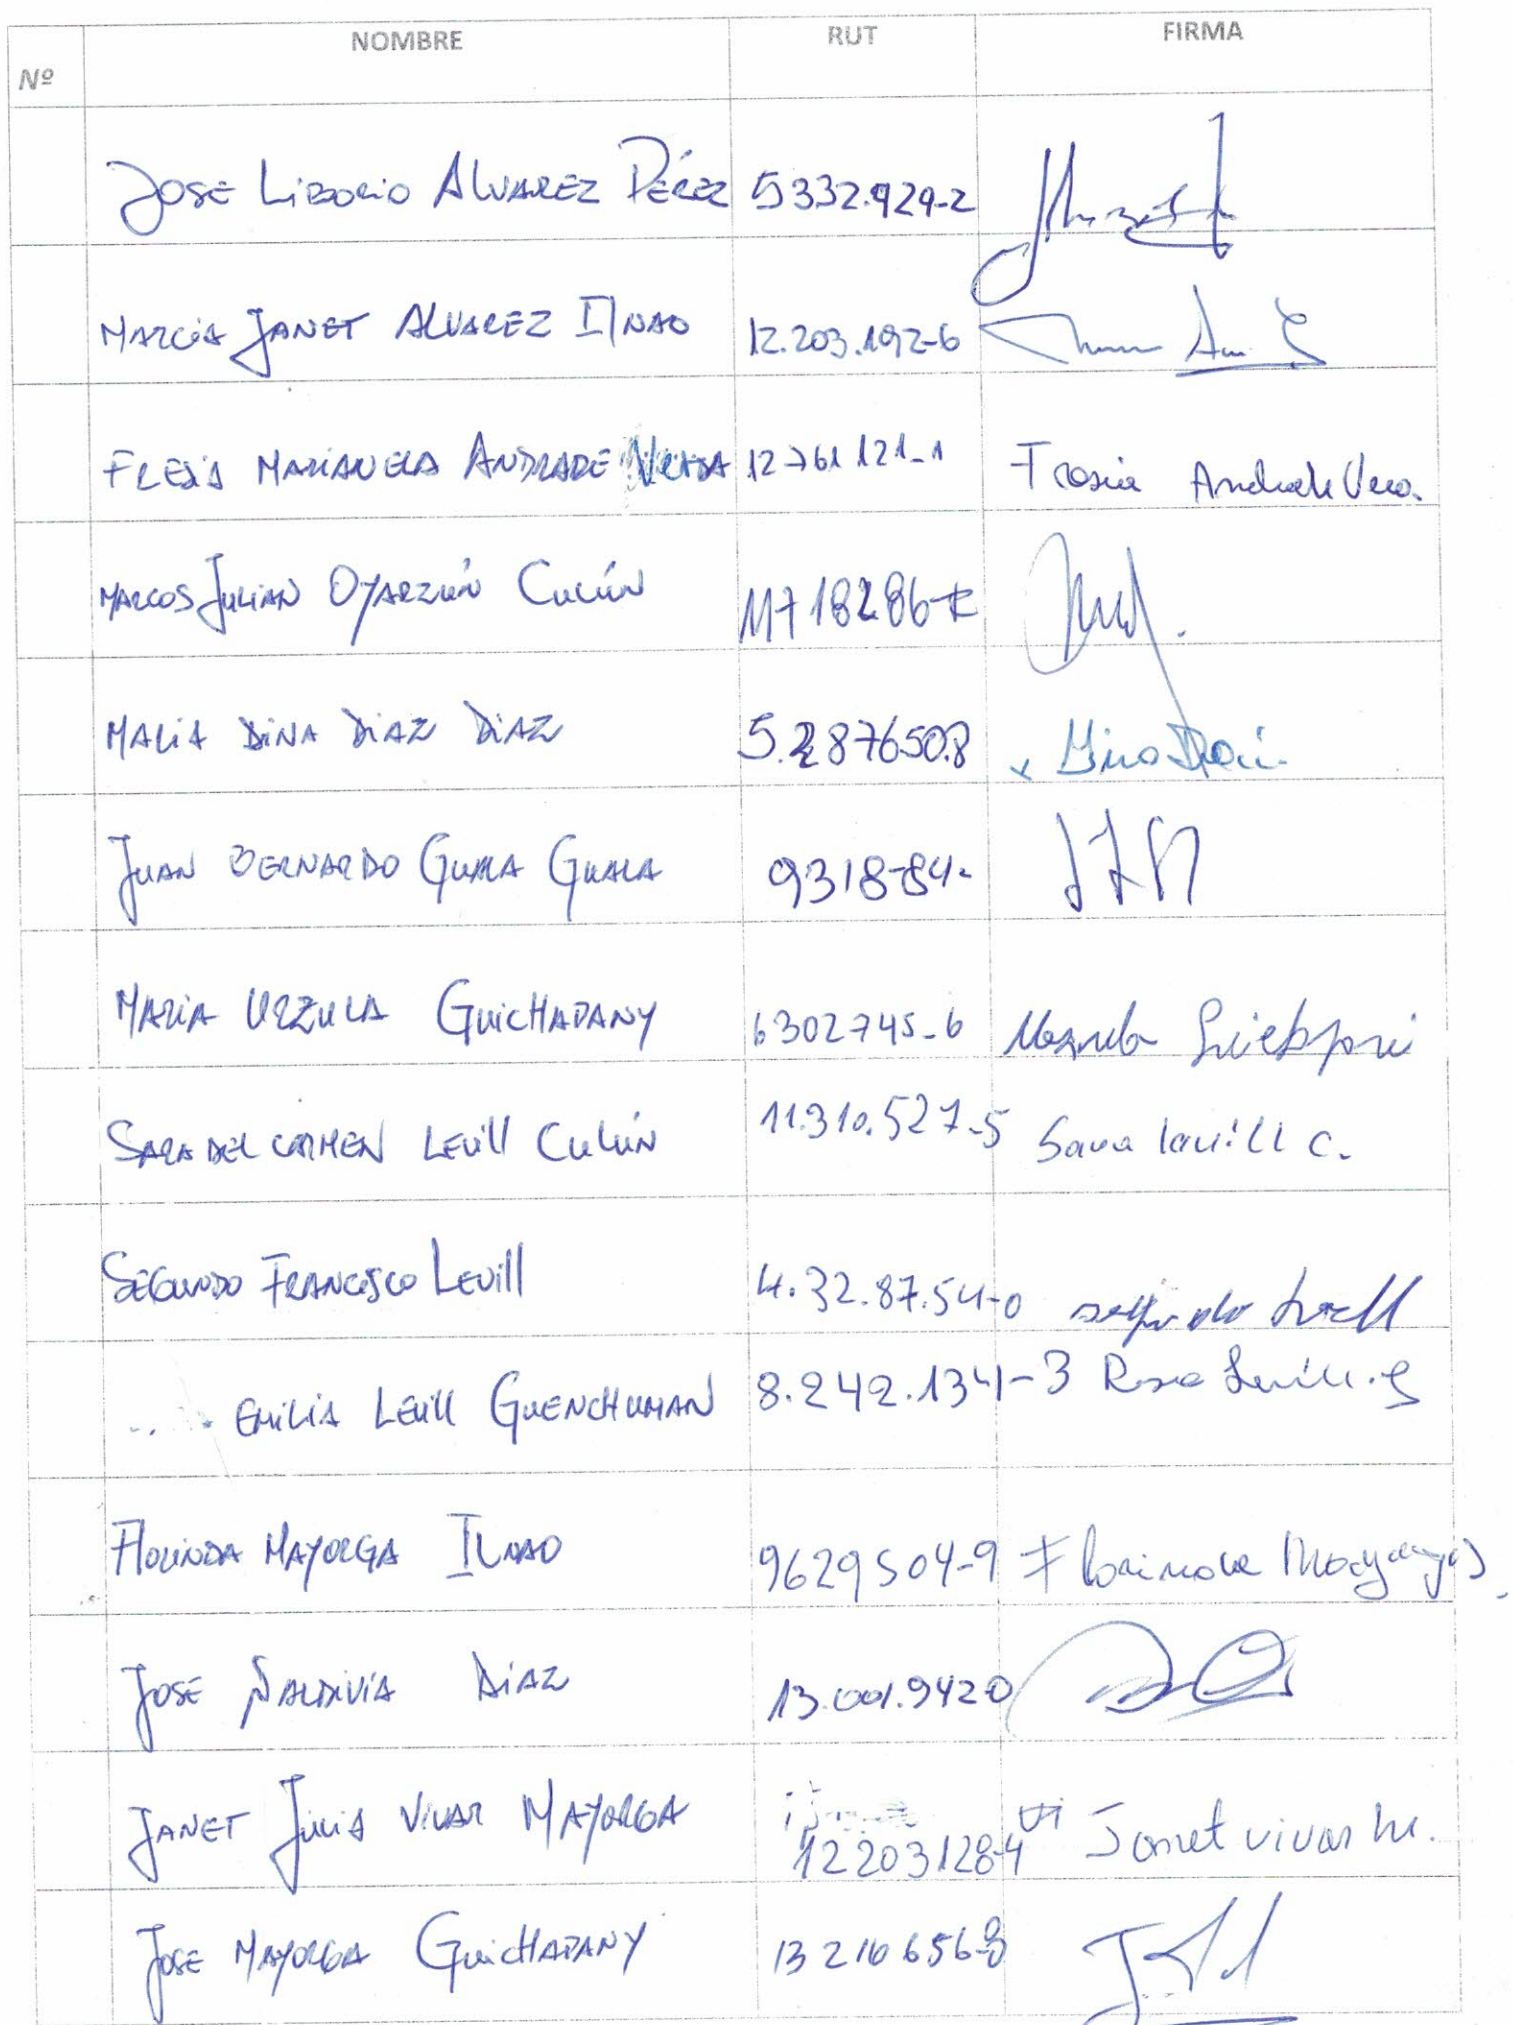 NOMBRE RUT FIRMA
Nº
JOSE LIBORIO ALVAREZ PÉREZ 5332.929-2
MARCIA JANET ALVAREZ IlNAO 12.203.192-6
FRESIA MARIANELA ANDRADE 12761121-1 Fresia Andrade Vera.
MARCOS JULIAN OYARZÚN CULÚN 11718286-K
MARIA DINA DIAZ DIAZ 5.2876508
JUAN BERNARDO GUALA GUALA 9318-84-
MARIA URZULA GUICHAPANY 6302745-6
SARA DEL CARMEN LEVIll CULÚN 11.310.527-5 Sara levill c.
SEGUNDO FRANCISCO LEVIll 4.32.87.54-0 segundo levill
EMILIA LEVIll GUENCHUMAN 8.242.134-3 Rosa Levill. G
FLORINDA MAYORGA ILNAO 9629504-9 Florinda Mayorga
JOSE SALDIVIA DIAZ 13.001.9420
JANET JULIA VIVAR MAYORGA 12203128-4 Janet vivar M.
JOSE MAYORGA GUICHAPANY 132106568